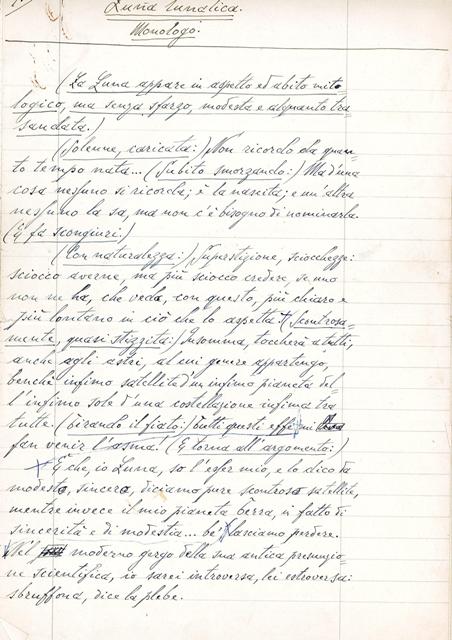 Luna lunatica.
Monologo.
(La Luna appare in aspetto ed abito mito-
logico, ma senza sfarzo, modesta e alquanto tra-
sandata.)
(Solenne, caricata:) Non ricordo da quan-
to tempo nata... (Subito smorzando:) Ma d'una
cosa nessuno si ricorda; è la nascita; e un'altra
nessuno la sa, ma non c'è bisogno di nominarla.
(E fa scongiuri.)
(Con naturalezza:) Superstizione, sciocchezze:
sciocco averne, ma più sciocco credere, se uno
non ne ha, che veda, con questo, più chiaro e
più lontano in ciò che lo aspetta. (Scontrosa-
mente, quasi stizzita:) Insomma, toccherà a tutti,
anche agli astri, al cui genere appartengo,
benchè infimo satellite d'un infimo pianeta del-
l'infimo sole d'una costellazione infima tra
tutte. (Tirando il fiato:) Tutti questi effe mi
fan venir l'asma! (E torna all'argomento:)
E che, io Luna, so l'esser mio, e lo dico da
modesto, sincero, diciamo pure scontroso satellite,
mentre invece il mio pianeta Terra, in fatto di
sincerità e di modestia... be' lasciamo perdere.
Nel moderno gergo della sua antica presunzio-
ne scientifica, io sarei introversa, lei estroversa:
sbruffona, dice la plebe.